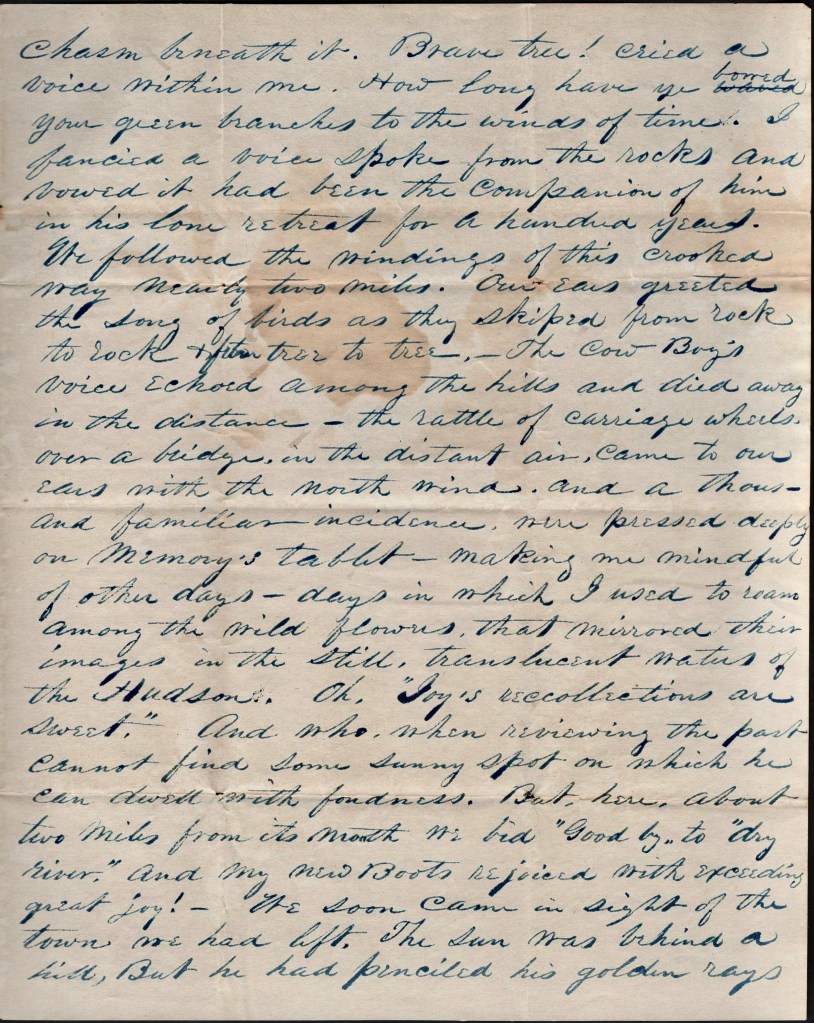 Chasm beneath it. Brave tree! cried a
voice within me. How long have ye bowed waved
your green branches to the winds of time!. I
fancied a voice spoke from the rocks and
vowed it had been the Companion of him
in his lone retreat for a hundred years.
We followed the windings of this crooked
way nearly two miles. Our Ears greeted
the song of birds as they skiped from rock
to rock & from tree to tree, – The Cow Boy's
voice Echoed among the hills and died away
in the distance – the rattle of carriage wheels.
over a bridge, in the distant air, came to our
Ears with the north wind. and a thous–
and familiar incidence, were pressed deeply
on Memory's tablet – making me mindful
of other days – days in which I used to roam
among the wild flowers, that mirrored their
images in the still, translucent waters of
the Hudson!. Oh, "Joy's reccollections are
sweet." And who, when reviewing the past
cannot find some sunny spot on which he
can dwell with fondness. But, here, about
two miles from its mouth we bid "Good by" to "dry
river," and my new Boots rejoiced with exceeding
great joy! – We soon came in sight of the
town we had left. The sun was behind a
hill, But he had penciled his golden rays